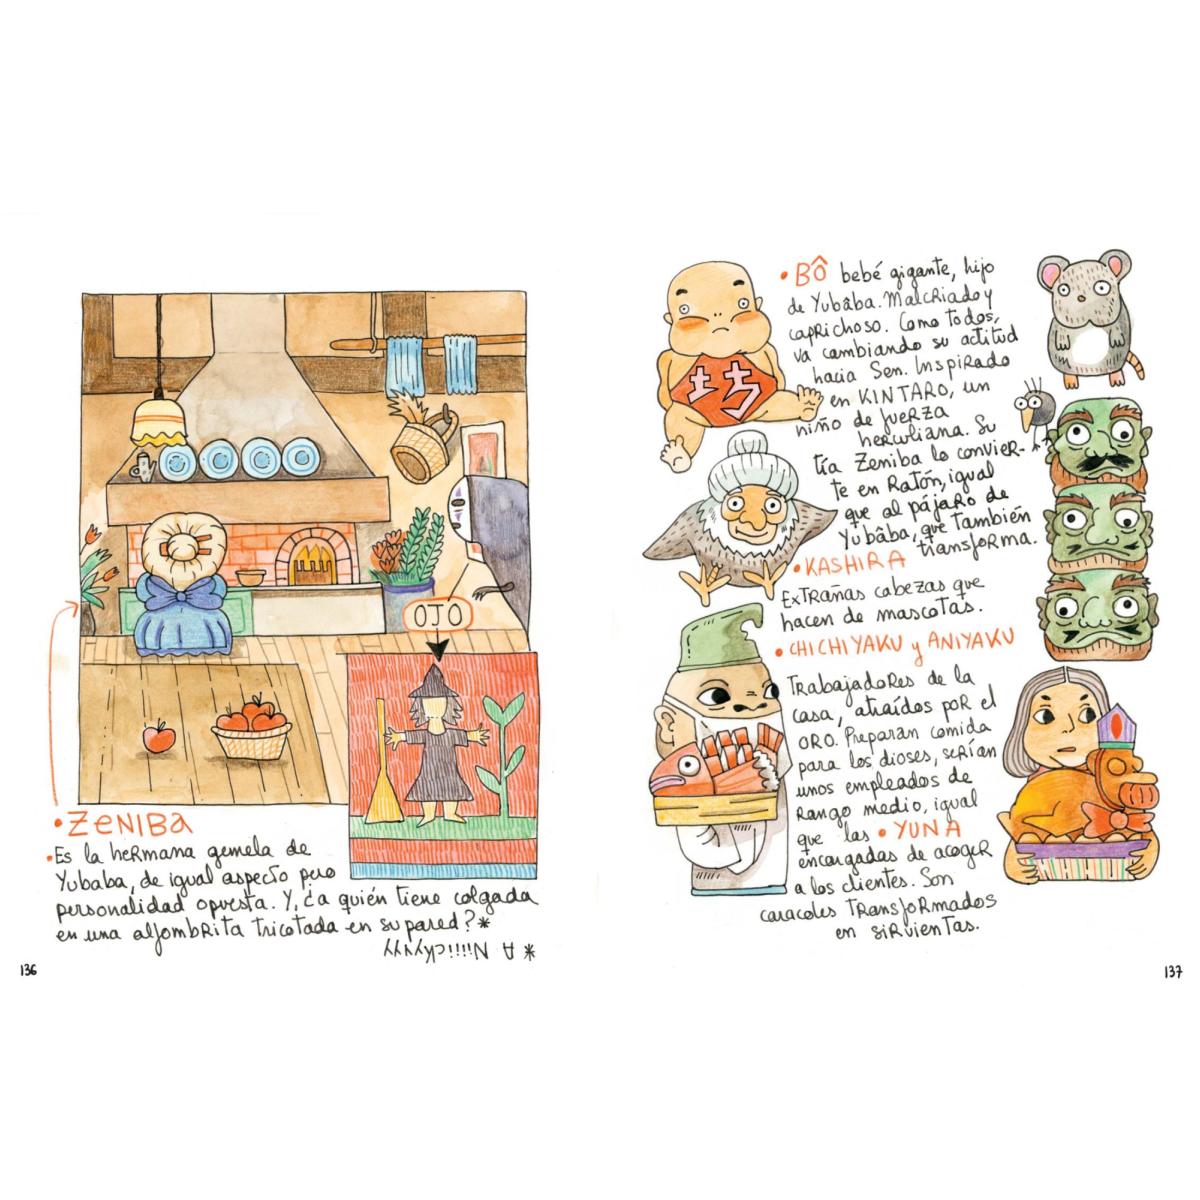 OJO
• ZENIBA
• Es la hermana gemela de
Yubaba, de igual aspecto pero
personalidad opuesta. Y, ¿a quién tiene colgada
en una alfombrita tricotada en su pared?*
* A Niiiickyyyy
136
坊
• BÔ bebé gigante, hijo
de Yubâba. Malcriado y
caprichoso. Como todos,
va cambiando su actitud
hacia Sen. Inspirado
en KINTARO, un
niño de fuerza
herculiana. Su
tía Zeniba lo convier-
te en Ratón, igual
que al pájaro de
Yubâba, que también
transforma.
• KASHIRA
Extrañas cabezas que
hacen de mascotas.
• CHICHIYAKU y ANIYAKU
Trabajadores de la
casa, atraídos por el
ORO. Preparan comida
para los dioses, serían
unos empleados de
rango medio, igual
que las • YUNA
encargadas de acoger
a los clientes. Son
caracoles transformados
en sirvientas.
137